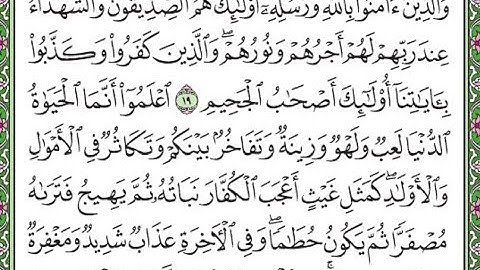 وَٱلَّذِينَ ءَامَنُوا۟ بِٱللَّهِ وَرُسُلِهِۦٓ أُو۟لَٰٓئِكَ هُمُ ٱلصِّدِّيقُونَ وَٱلشُّهَدَآءُ
عِندَ رَبِّهِمْ لَهُمْ أَجْرُهُمْ وَنُورُهُمْ ۖ وَٱلَّذِينَ كَفَرُوا۟ وَكَذَّبُوا۟
بِـَٔايَٰتِنَآ أُو۟لَٰٓئِكَ أَصْحَٰبُ ٱلْجَحِيمِ ١٩ ٱعْلَمُوٓا۟ أَنَّمَا ٱلْحَيَوٰةُ
ٱلدُّنْيَا لَعِبٌ وَلَهْوٌ وَزِينَةٌ وَتَفَاخُرٌۢ بَيْنَكُمْ وَتَكَاثُرٌ فِى ٱلْأَمْوَٰلِ
وَٱلْأَوْلَٰدِ ۖ كَمَثَلِ غَيْثٍ أَعْجَبَ ٱلْكُفَّارَ نَبَاتُهُۥ ثُمَّ يَهِيجُ فَتَرَىٰهُ
مُصْفَرًّا ثُمَّ يَكُونُ حُطَٰمًا ۖ وَفِى ٱلْـَٔاخِرَةِ عَذَابٌ شَدِيدٌ وَمَغْفِرَةٌ